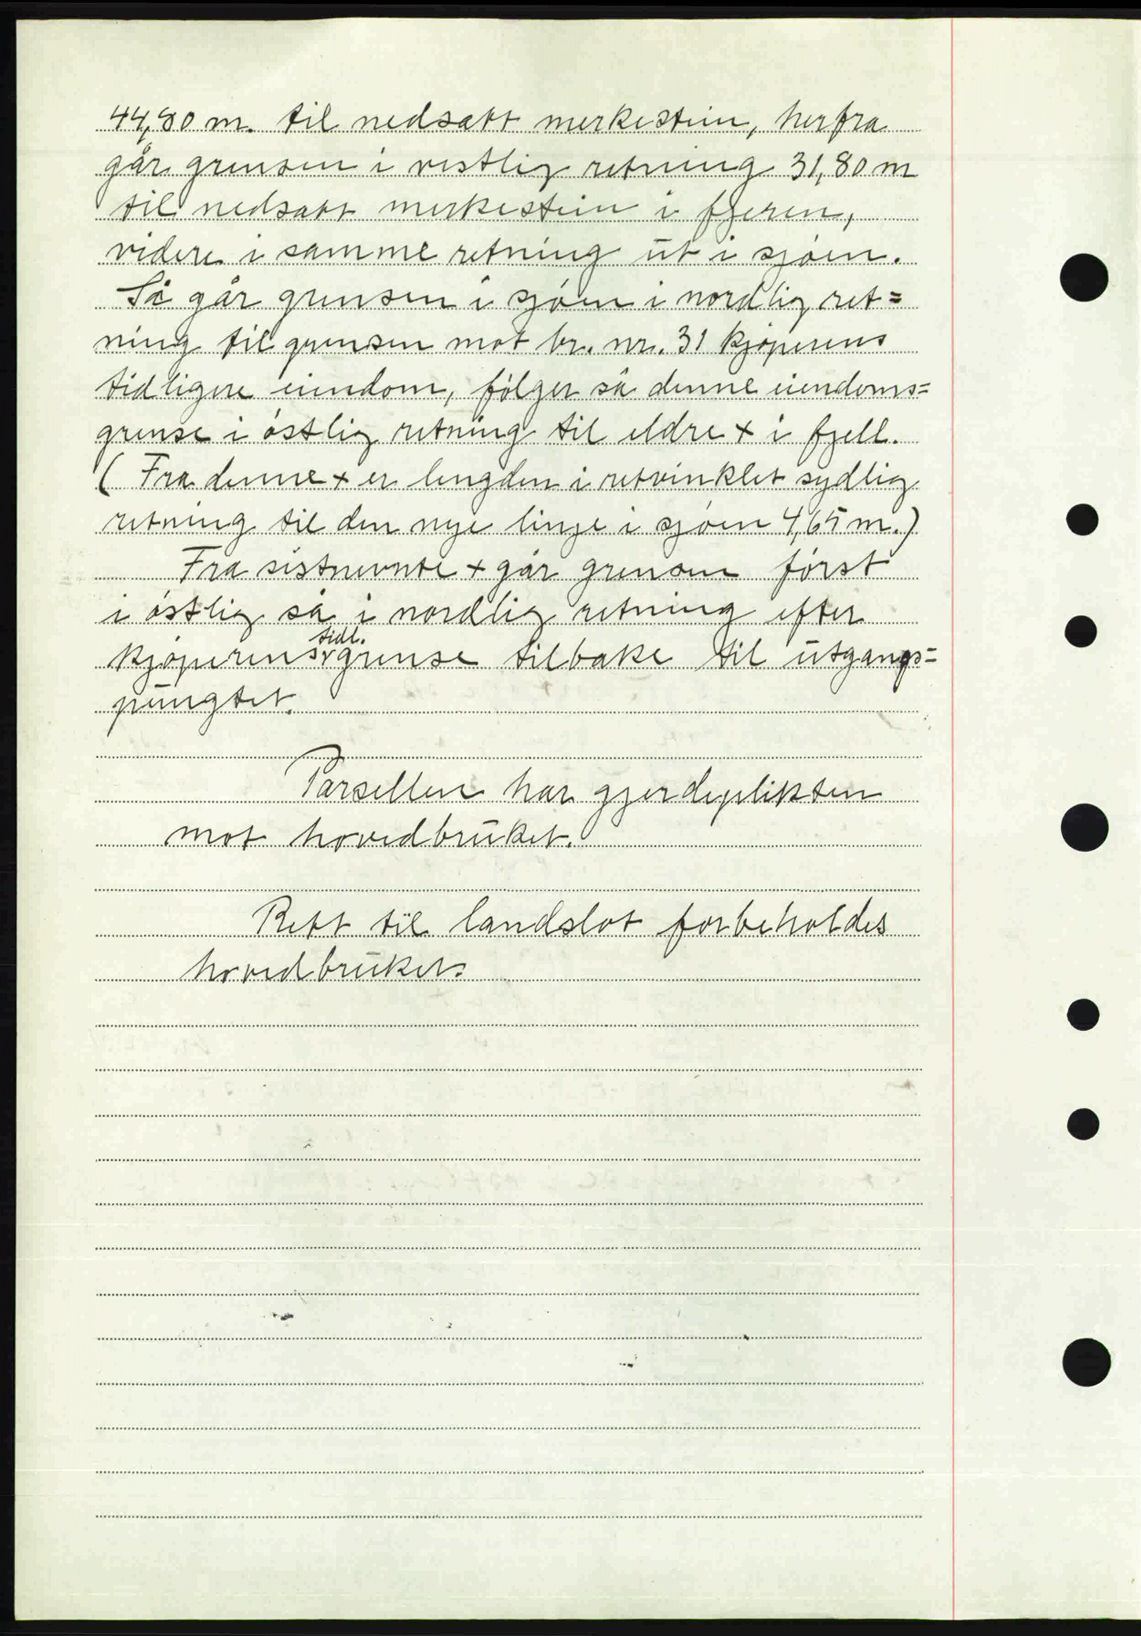 44,80 m. til nedsatt merkestein, herfra
går grensen i vestlig retning 31,80 m
til nedsatt merkestein i fjeren,
videre i samme retning ut i sjøen.
Så går grensen i sjøen i nordlig ret=
ning til grensen mot br. nr. 31 kjøperens
tidligere eiendom, følger så denne eiendoms=
grense i østlig retning til eldre + i fjell.
(Fra denne + er lengden i retvinklet sydlig
retning til den nye linje i sjøen 4,65 m.)
Fra sistnevnte + går grensen først
i østlig så i nordlig retning efter
kjøperens tidl. grense tilbake til utgangs=
pungtet.
Parsellen har gjerdeplikten
mot hovedbruket.
Rett til landslot forbeholdes
hovedbruket.